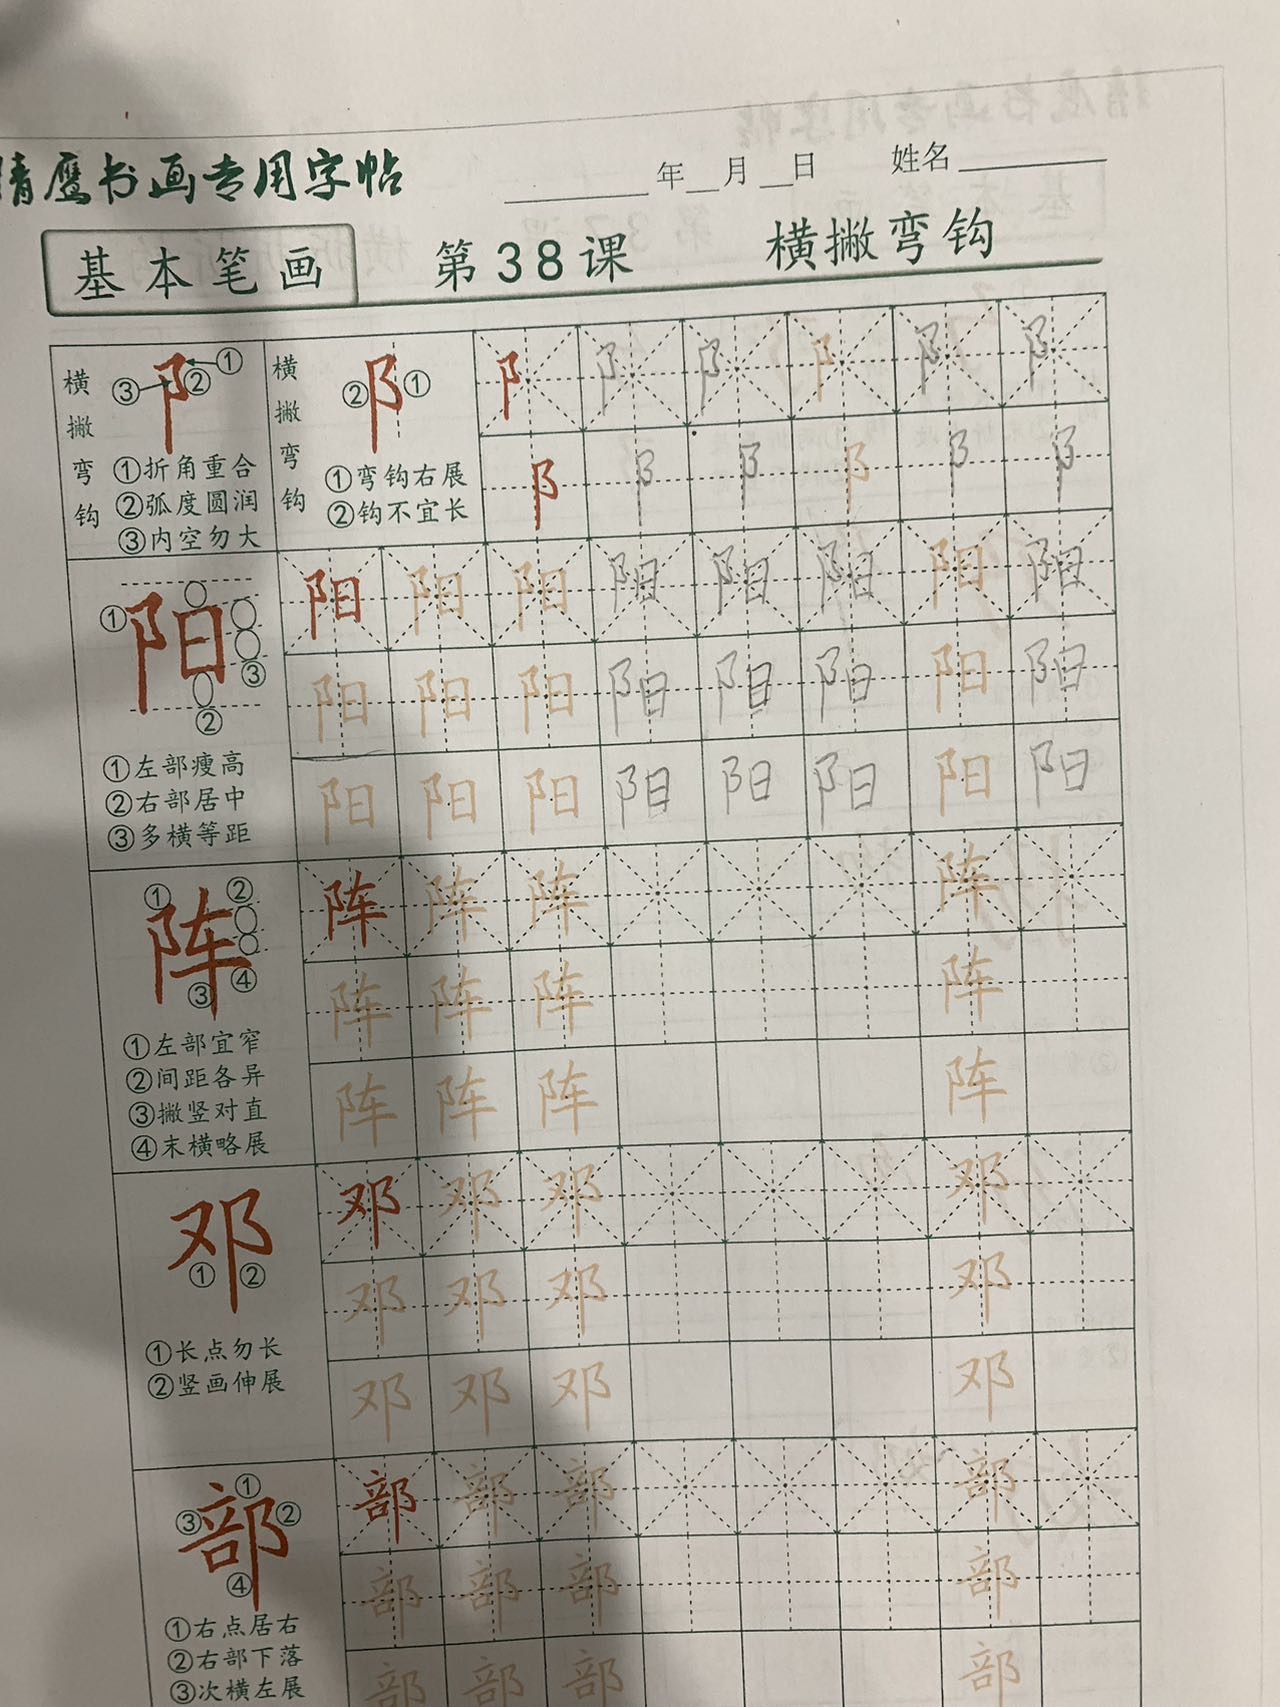 精鹰书画专用字帖 年 月 日 姓名
基本笔画 第38课 横撇弯钩
横撇弯钩
① ② ③ 阝
①折角重合
②弧度圆润
③内空勿大
横撇弯钩
② 阝 ①
①弯钩右展
②钩不宜长
阝 阝 阝 阝 阝 阝
阝 阝 阝 阝 阝 阝
① 阳 ③ ②
①左部瘦高
②右部居中
③多横等距
阳 阳 阳 阳 阳 阳 阳 阳
阳 阳 阳 阳 阳 阳 阳 阳
阳 阳 阳 阳 阳 阳 阳 阳
① ② 阵 ③ ④
①左部宜窄
②间距各异
③撇竖对直
④末横略展
阵 阵 阵 阵
阵 阵 阵 阵
阵 阵 阵 阵
邓 ① ②
①长点勿长
②竖画伸展
邓 邓 邓 邓
邓 邓 邓 邓
邓 邓 邓 邓
① ③ 部 ② ④
①右点居右
②右部下落
③次横左展
部 部 部 部
部 部 部 部
部 部 部 部